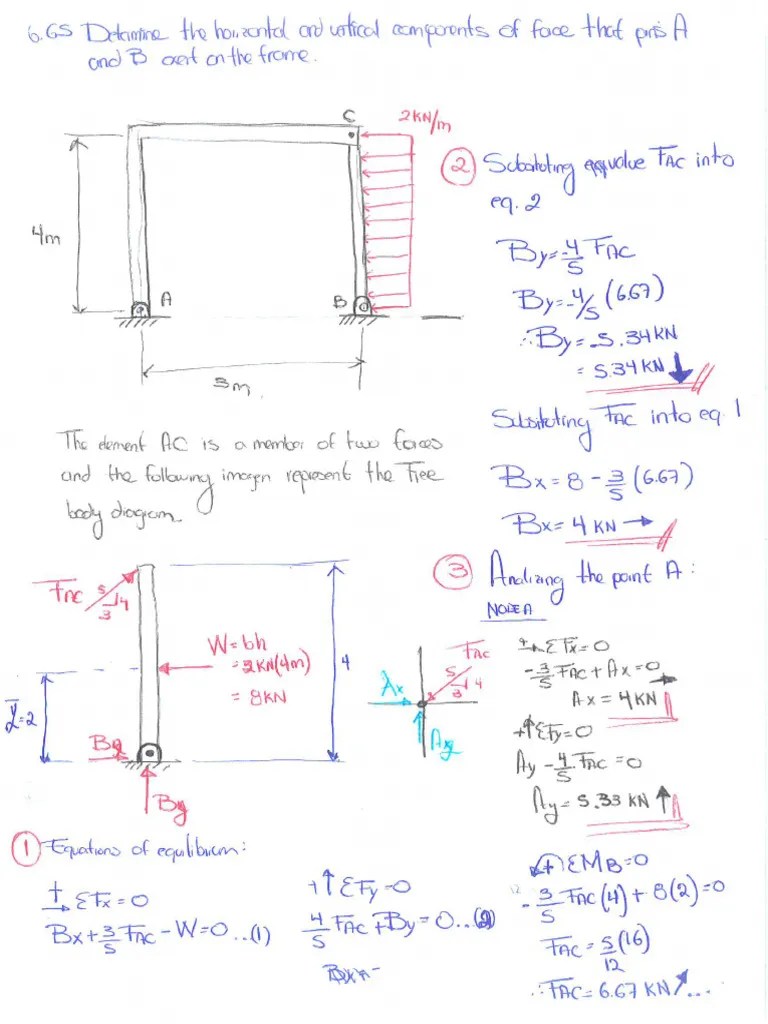 6.65 Determine the horizontal and vertical components of force that pins A
and B exert on the frame.
C
2KN/m
4m
A
B
3m
The element AC is a member of two forces
and the following imagen represent the Free
body diagram.
FAC
5
4
3
W=bh
=2KN(4m)
=8KN
4
ȳ=2
Bx
By
① Equations of equilibrium:
+→ ΣFx=0
Bx+3/5 FAC-W=0...(1)
+↑ΣFy=0
4/5 FAC+By=0...(2)
② Substituting value FAC into
eq. 2
By=-4/5 FAC
By=-4/5 (6.67)
∴By=-5.34KN
= 5.34KN ↓
Substituting FAC into eq. 1
Bx=8-3/5(6.67)
Bx=4KN →
③ Analizing the point A:
NODE A
FAC
5
4
3
Ax
Ay
+→ΣFx=0
-3/5 FAC+Ax=0
Ax=4KN →
+↑ΣFy=0
Ay-4/5 FAC=0
Ay=5.33KN ↑
+ΣMB=0
-3/5 FAC(4)+8(2)=0
FAC=5/12(16)
∴FAC=6.67KN ↗...